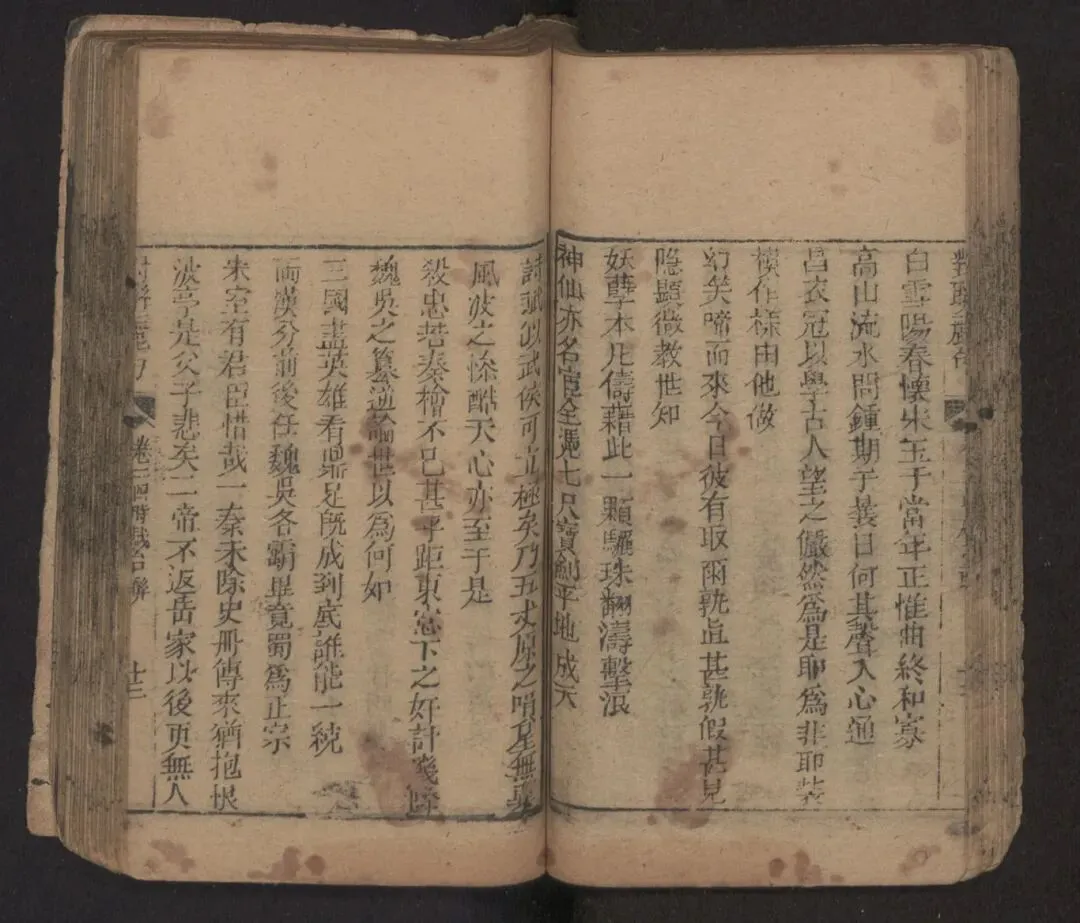 白雪陽春懷宋玉于當年正惟曲終和寡
高山流水問鍾期于曩日何其聲入心通
昌衣冠以學古人望之儼然為是耶為非耶裝
模作樣由他做
幻矣啼而來今日彼有取爾孰真甚孰假甚見
隱顯微教世知
妖孽本凡儔藉此一顆驪珠翻濤擊浪
神仙亦名宦全憑七尺寶劍平地成天
詩武侯可並極矣乃五丈原之隕星無
風波之慘酷天心亦至于是
殺忠若秦檜不已甚乎距東窓下之奸計幾
魏吳之篡逆論世以為何如
三國盡英雄看鼎足既成到底誰能一統
兩漢分前後任魏吳各霸畢竟蜀為正宗
宋室有君臣惜哉一秦未除史冊傳來猶抱恨
波亭是父子悲矣二帝不返岳家以後更無人
卷二 戲台聯 廿三